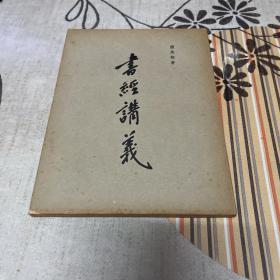 書經講義